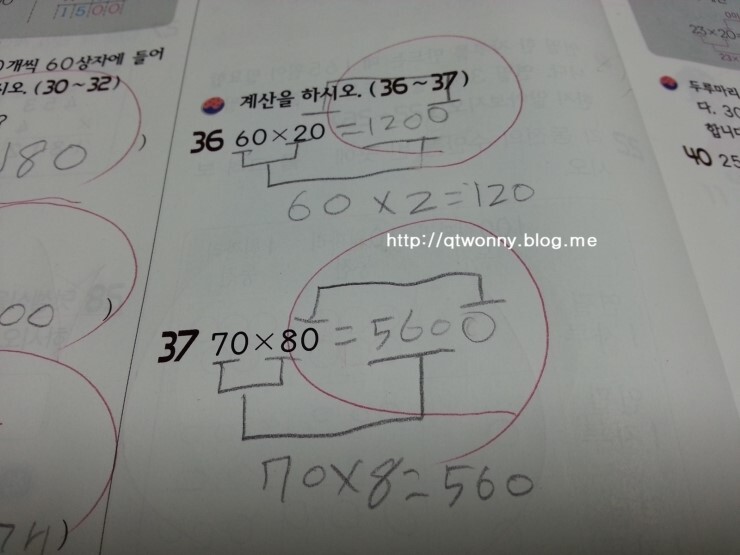 1500
0개씩 60상자에 들어
시오. (30~32)
180 )
00 )
74 )
계산을 하시오. (36~37)
36 60×20=1200
60×2=120
http://qtwonny.blog.me
37 70×80=5600
70×8=560
23×20=
두루마리
다. 30
합니다
40 25